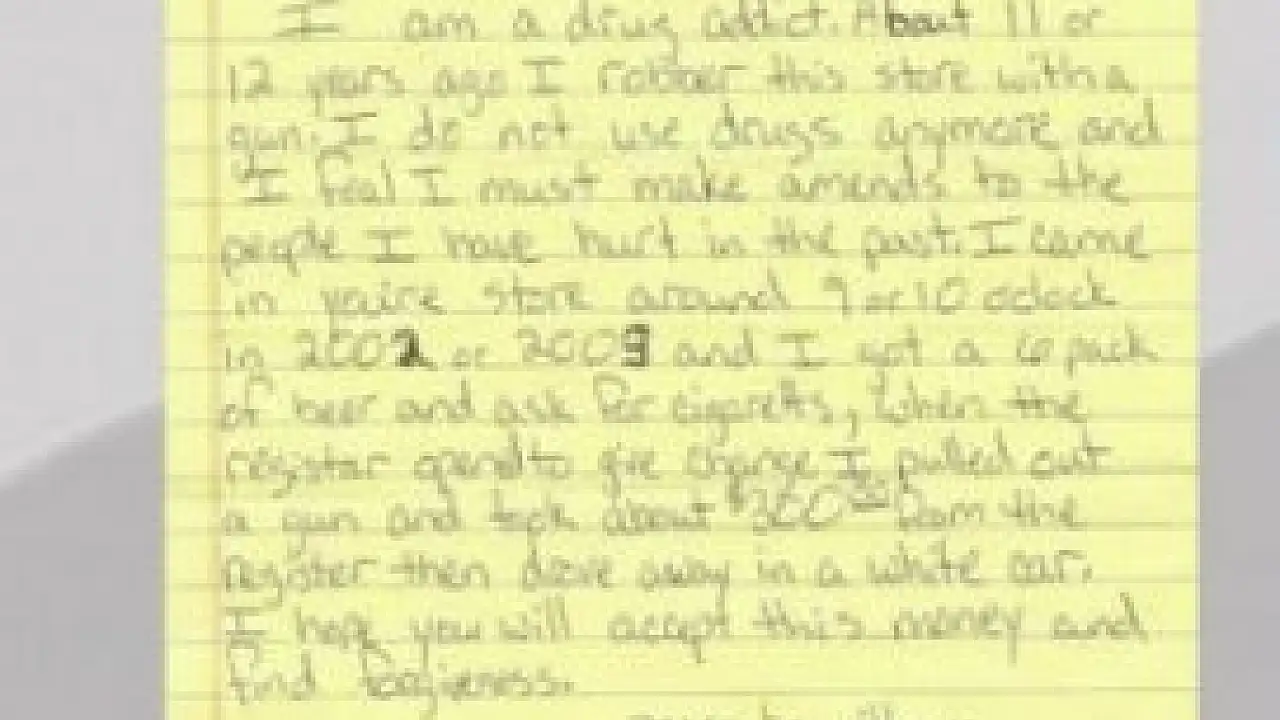 I am a drug addict. About 11 or
12 years ago I robber this store with a
gun. I do not use drugs anymore and
I feal I must make amends to the
people I have hurt in the past. I came
in you're store around 9 or 10 oclock
in 2002 or 2003 and I got a 6 pack
of beer and ask for cigaretts, when the
registar opend to give change I pulled out
a gun and took about $300.00 from the
register then drove away in a white car.
I hope you will accept this money and
find forgiveness.